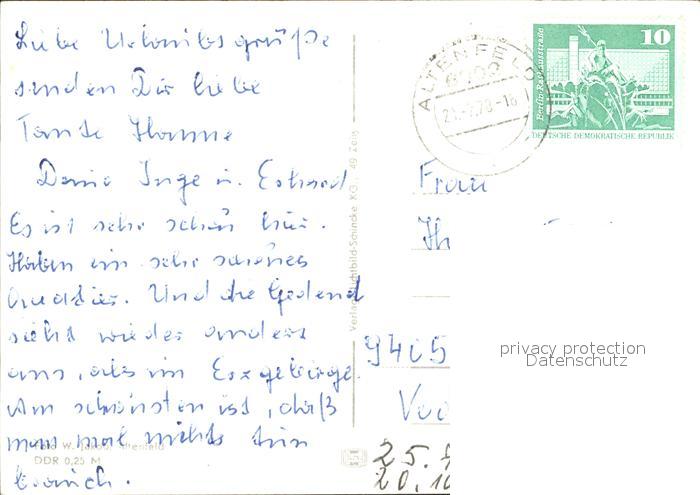 Liebe Urlaubsgrüße
senden Dir liebe
Tante Hanne
Deine Inge u.
Es ist sehr schön hier.
Haben ein sehr schönes
Quartier. Und die Gegend
sieht wieder anders
aus, als im Erzgebirge.
Am schönsten ist, daß
man mal nichts tun
brauch.
Foto W.
DDR 0,25 M
Verlag Lichtbild-Schincke KG, 49 Zeitz
ALTENFELD
10
Berlin-Rathausstraße
DEUTSCHE DEMOKRATISCHE REPUBLIK
Frau
9405
privacy protection
Datenschutz